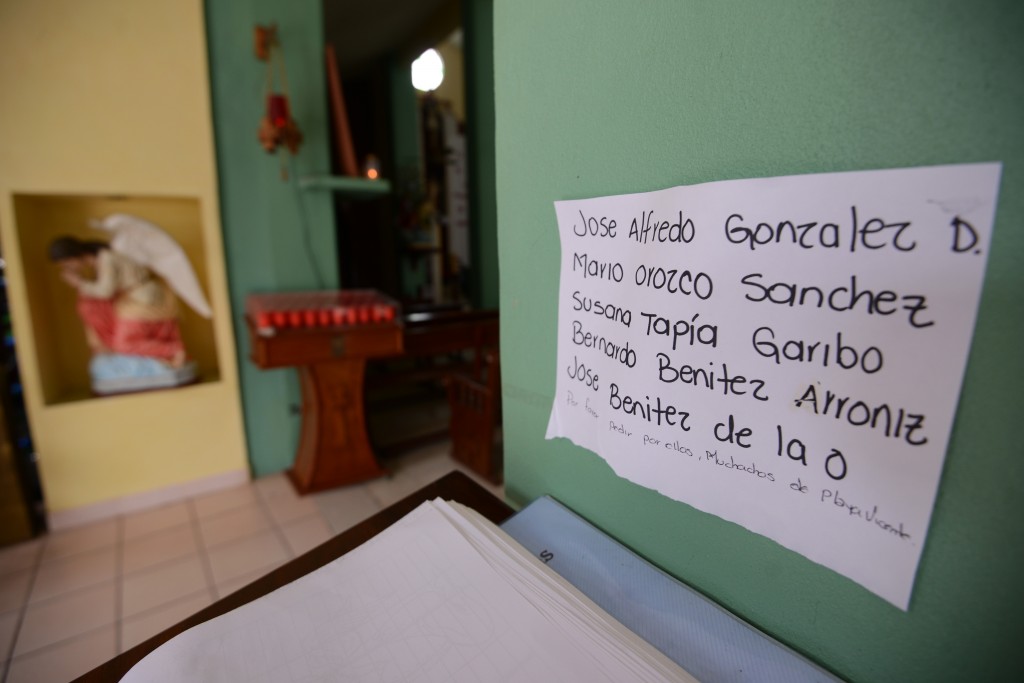 Jose Alfredo Gonzalez D.
Mario Orozco Sanchez
Susana Tapía Garibo
Bernardo Benitez Arroniz
Jose Benitez de la O
Por favor Pedir por ellos, Muchachos de Playa Vicente.
S